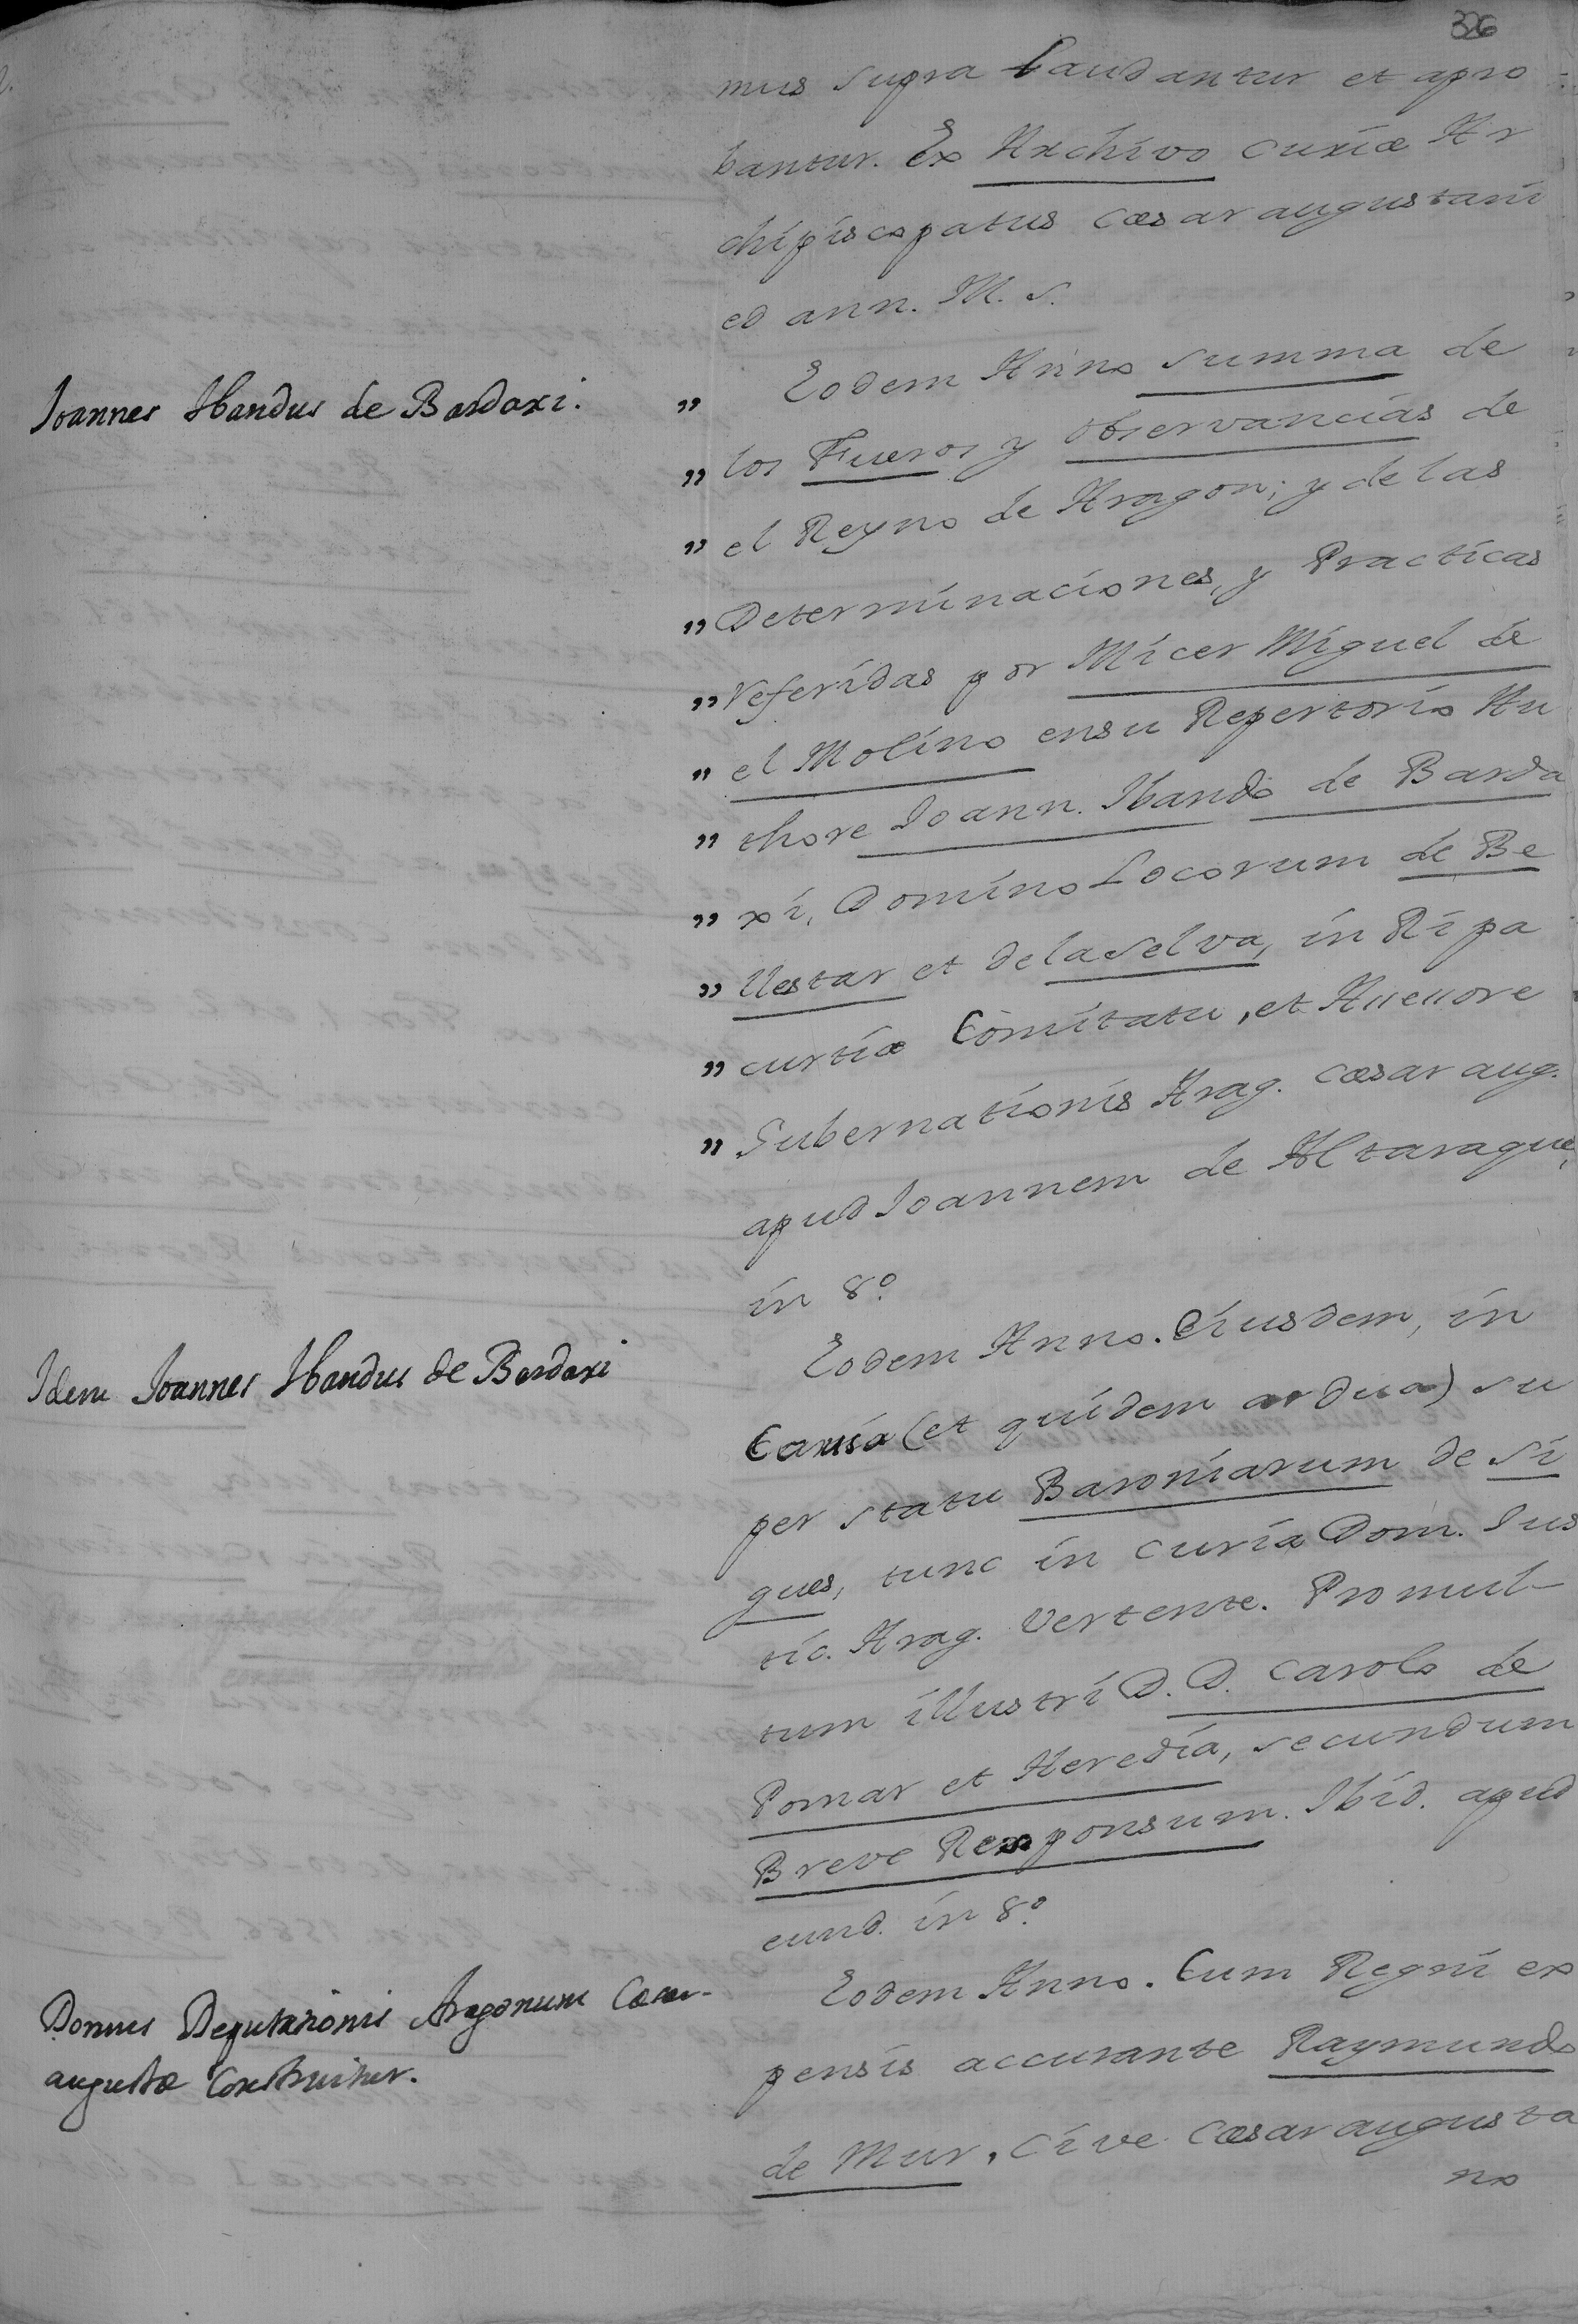 326
mus supra Laudantur et apro
bantur. Ex Archivo curiæ Ar
chipiscopatus cæsaraugustani
ed ann. M. S.
Joannes Ibandus de Bardaxi.
„ Eodem Anno summa de
„ los Fueros y observancias de
„ el Reyno de Aragon; y de las
„ Determinaciones, y Practicas
„ referidas por Micer Miguel de
„ el Molino ensu Repertorio Au
„ thore Ioann. Ibando de Barda
„ xi, Domino Locorum de Be
„ llestar et de la Selva, in Ripa
„ curtiæ Comitatu, et Assessore
„ Gubernationis Arag. cæsaraug.
apud Joannem de Altaraque,
in 8º
Idem Joannes Ibandus de Bardaxi
Eodem Anno. Eiusdem, in
Causa (et quidem ardua) su
per statu Baroniarum de Si
gues, tunc in curia Dom. Ius
tic. Arag. vertente. Promul-
tum illustri D. D. Carolo de
Pomar et Heredia, secundum
Breve Responsum. Ibid. apud
eund. in 8º
Domus Deputationis Aragonum Cæsar-
augustæ Construitur.
Eodem Anno. Cum Regni ex
pensis accurante Raymundo
de Mur, cive cæsaraugusta
no